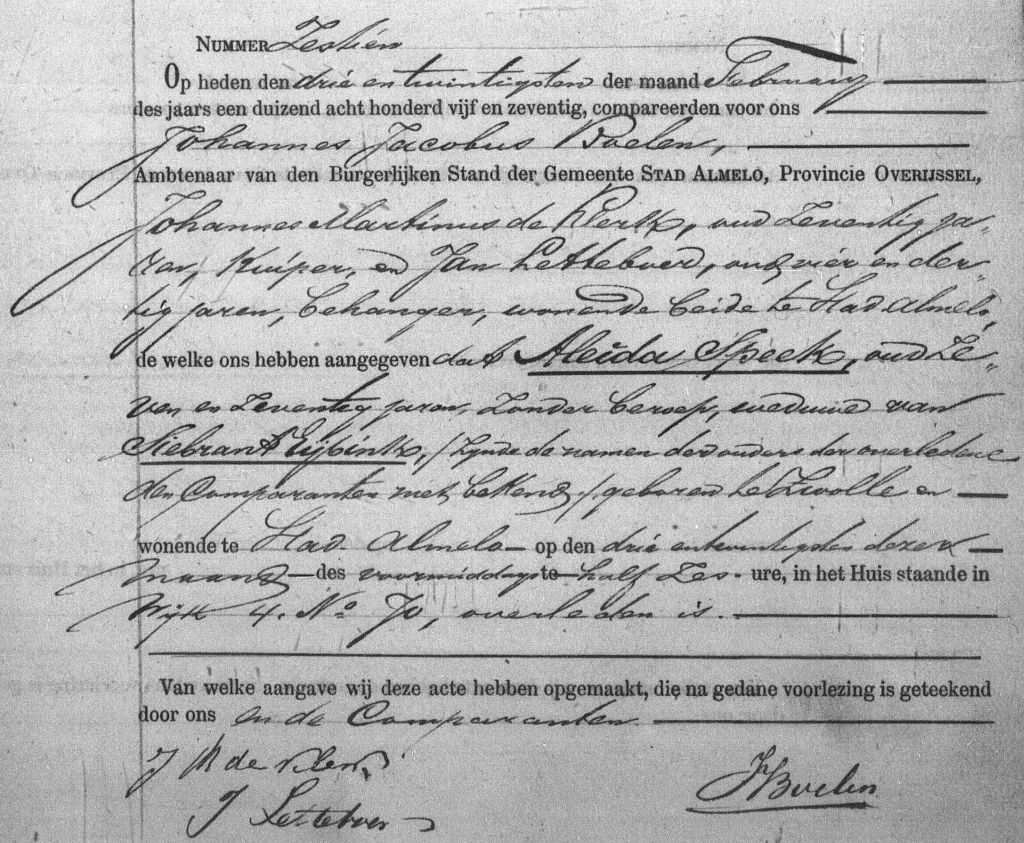 NUMMER Zestien
Op heden den drie en twintigsten der maand February
des jaars een duizend acht honderd vijf en zeventig, compareerden voor ons
Johannes Jacobus Boelen,
Ambtenaar van den Burgerlijken Stand der Gemeente STAD ALMELO, Provincie OVERIJSSEL,
Johannes Martinus de Klerk, oud Zeventig ja-
ren, Kuiper, en Jan Letteboer, oud vier en der-
tig jaren, behanger, wonende beide te Stad Almelo,
de welke ons hebben aangegeven dat Aleida Speek, oud Ze-
ven en Zeventig jaren, Zonder beroep, weduwe van
Siebrant Eijsink, /Zynde de namen der ouders der overledene
den Comparanten niet bekend,/ geboren te Zwolle en
wonende te Stad Almelo op den drie entwintigsten dezer
maand des voormiddags te half Zes ure, in het Huis staande in
Wijk 4. No 70, overleden is.
Van welke aangave wij deze acte hebben opgemaakt, die na gedane voorlezing is geteekend
door ons en de Comparanten.
J M de Klerk
J Letteboer
JJBoelen